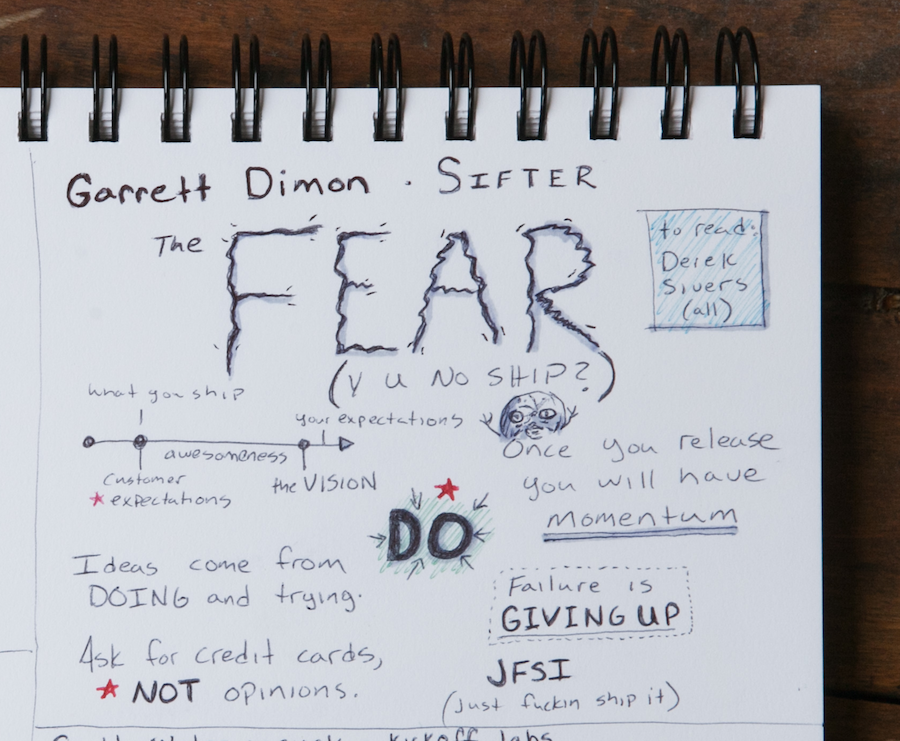 Garrett Dimon · SIFTER
The FEAR
(Y U NO SHIP?)
to read:
Derek
Sivers
(all)
what you ship
your expectations
awesomeness
customer
expectations
the VISION
Once you release
you will have
momentum
DO
Ideas come from
DOING and trying.
Failure is
GIVING UP
Ask for credit cards,
NOT opinions.
JFSI
(just fuckin ship it)
kickoff labs